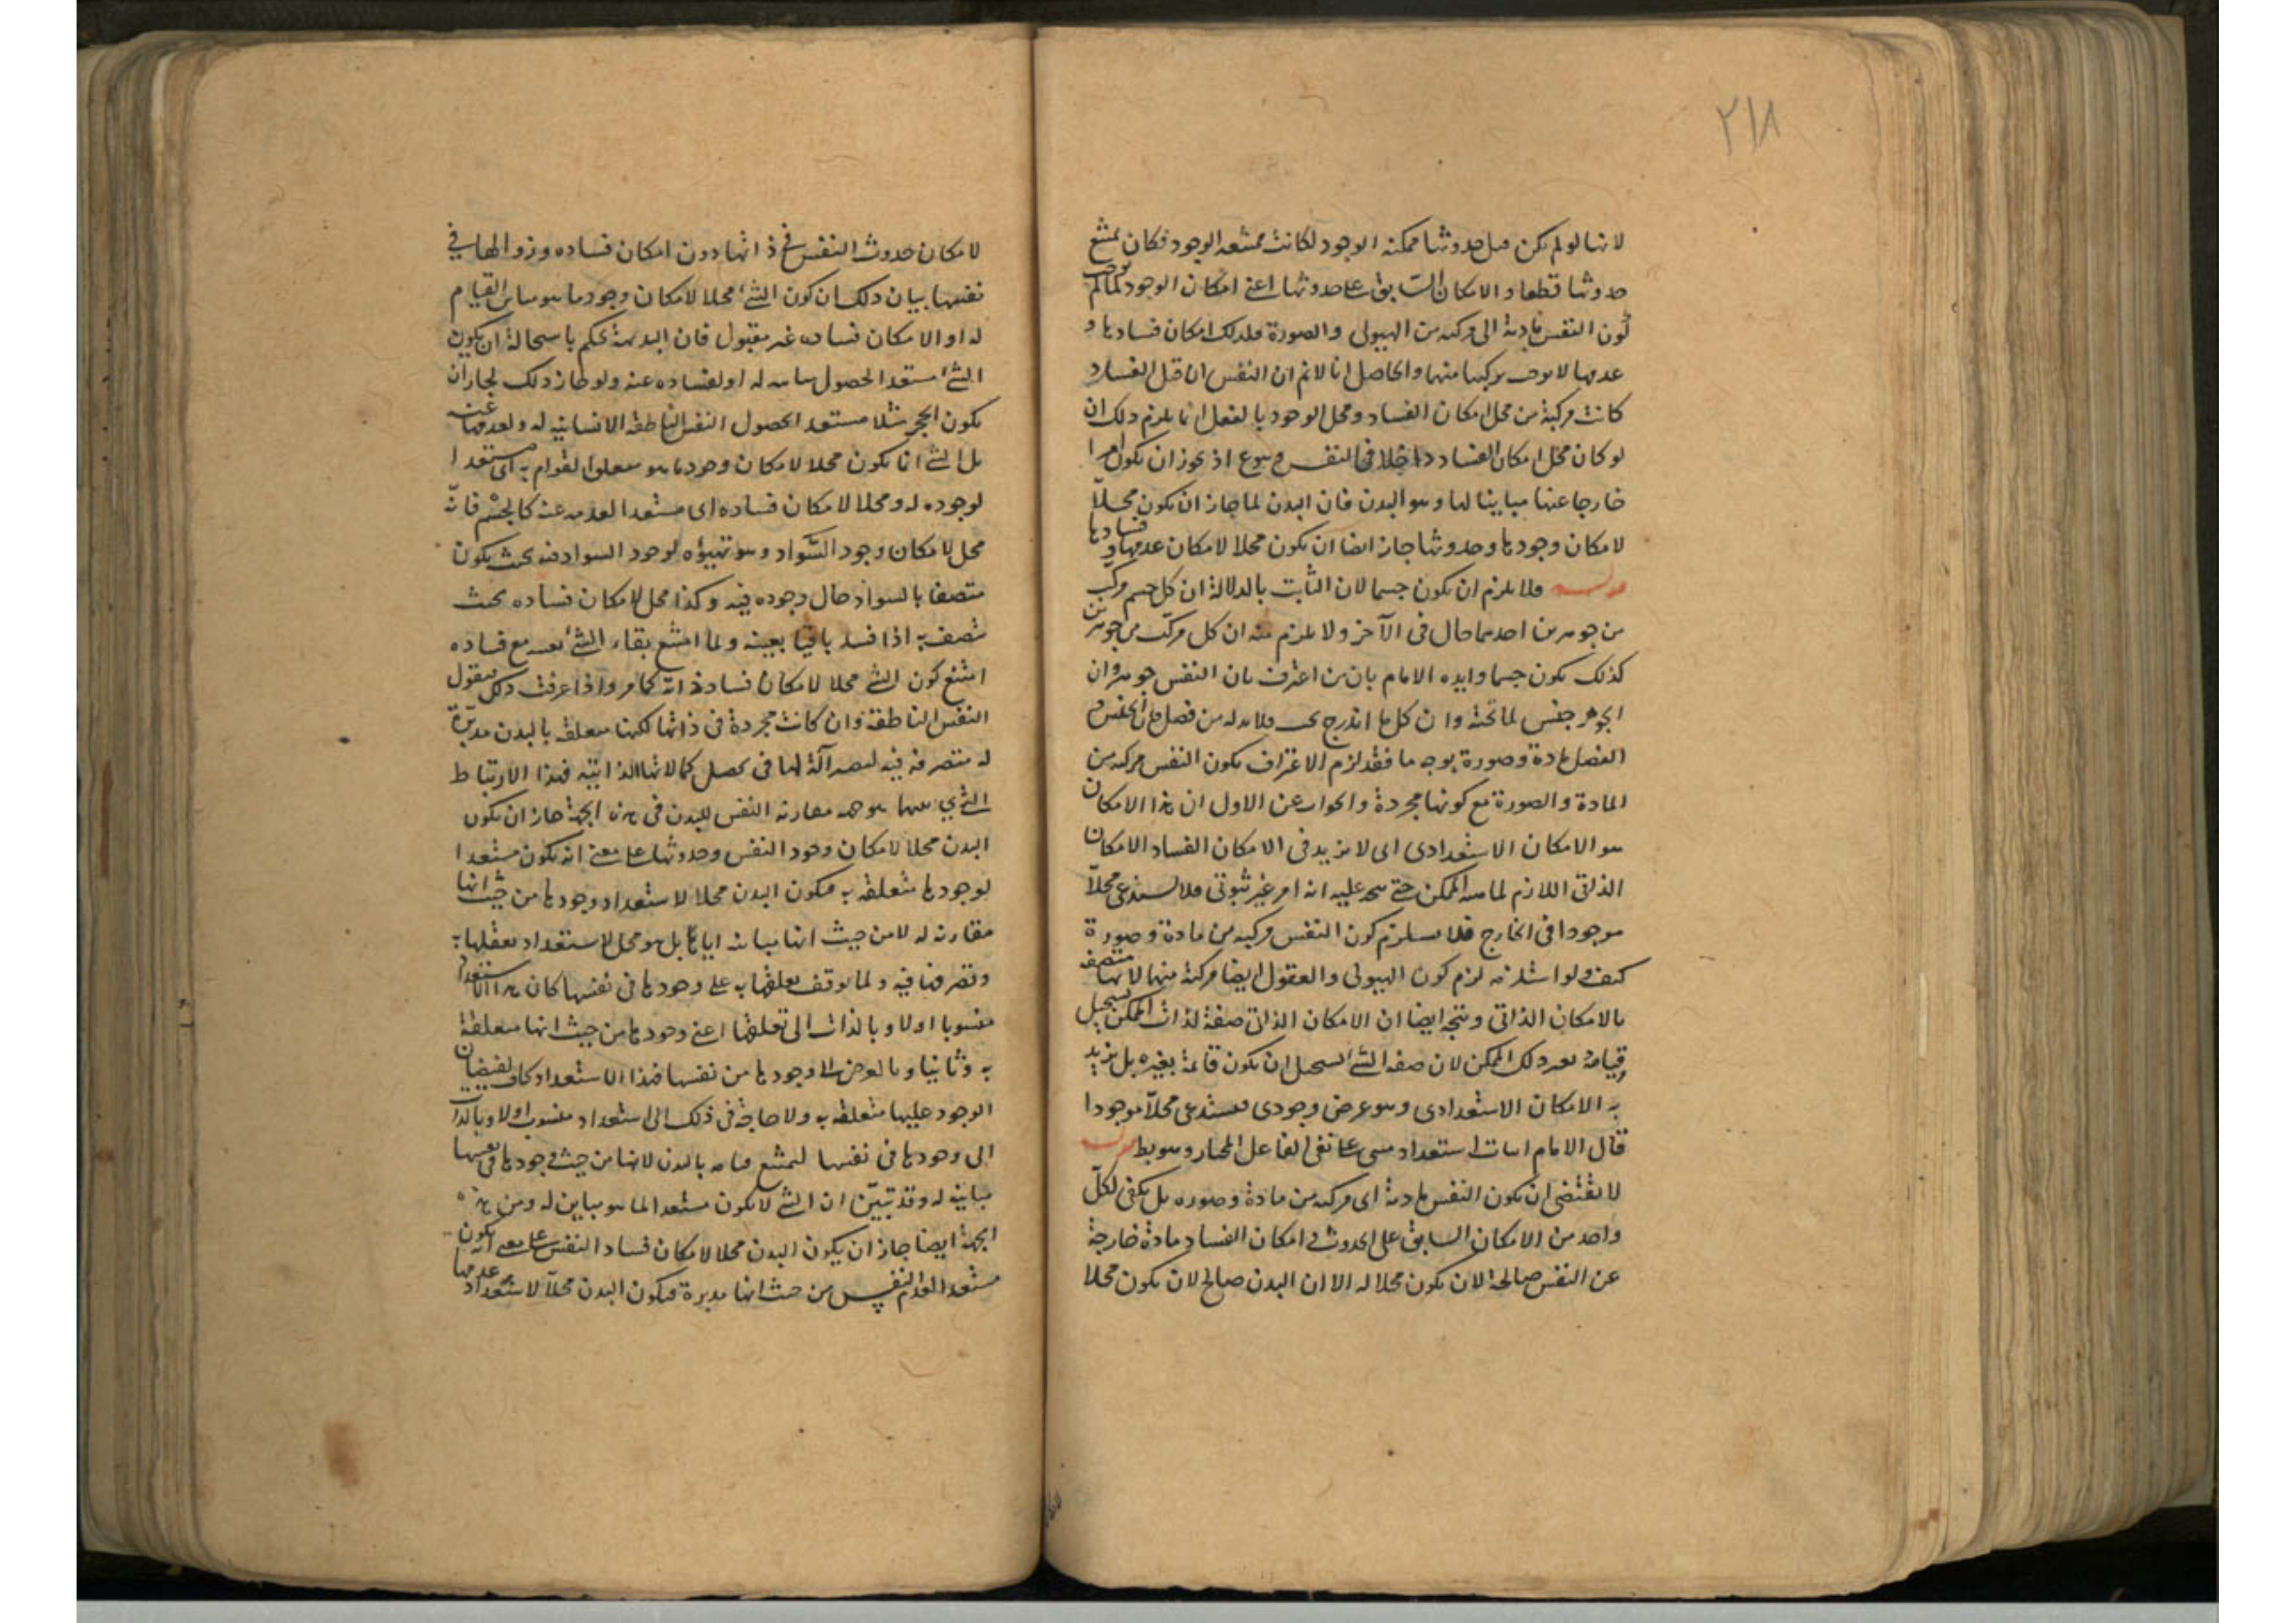 ٢١٨
لانها لو لم يكن قبل حدوثها ممكنة الوجود لكانت ممتنعة الوجود فكان يمتنع
حدوثها قطعا والامكان السابق على حدوثها اعنى امكان الوجود لما لم يوجب
كون النفس مادية اى مركبة من الهيولى والصورة فلذلك امكان فسادها و
عدمها لا يوجب تركبها منهما والحاصل انا لانم ان النفس ان قبل الفساد
كانت مركبة من محل امكان الفساد ومحل الوجود بالفعل انما يلزم ذلك ان
لو كان محل امكان الفساد داخلا فى النفس وهو ع اذ يجوز ان يكون امرا
خارجا عنها مباينا لها وهو البدن فان البدن لما جاز ان يكون محلا
لامكان وجودها وحدوثها جاز ايضا ان يكون محلا لامكان عدمها وفسادها
فلا يلزم ان يكون جسما لان الثابت بالدلالة ان كل جسم مركب
من جوهرين احدهما حال فى الآخر ولا يلزم منه ان كل مركب من جوهرين
كذلك يكون جسما وايده الامام بان من اعترف بان النفس جوهر وان
الجوهر جنس لما تحته وان كل ما اندرج تحت فلا بد له من فصل فان الجنس و
الفصل مادة وصورة بوجه ما فقد لزم الاعتراف بكون النفس مركبة من
المادة والصورة مع كونها مجردة والجواب عن الاول ان هذا الامكان
هو الامكان الاستعدادى اى لا نريد فى الامكان الفساد الامكان
الذاتى اللازم لماهية الممكن حتى يتجه عليه انه امر غير ثبوتى فلا يستدعى محلا
موجودا فى الخارج فلا يستلزم كون النفس مركبة من مادة وصورة
كيف ولو استلزمه لزم كون الهيولى والعقول ايضا مركبة منهما لانها متصفة
بالامكان الذاتى ويتجه ايضا ان الامكان الذاتى صفة لذات الممكن يستحيل
قيامه بغير ذلك الممكن لان صفة الشئ يستحيل ان يكون قائمة بغيره بل نريد
به الامكان الاستعدادى وهو عرض وجودى فيستدعى محلا موجودا
قال الامام اثبات استعداد مبنى على نفى الفاعل المختار وهو بط
لا يقتضى ان يكون النفس مادية اى مركبة من مادة وصورة بل يكفى لكل
واحد من الامكان السابق على الحدوث وامكان الفساد مادة خارجة
عن النفس صالحة لان يكون محلا له الا ان البدن صالح لان يكون محلا
لامكان حدوث النفس فى ذاتها دون امكان فساده وزوالها فى
نفسها بيان ذلك ان كون الشئ محلا لامكان وجود ما هو مباين القيام
له او الامكان فساده غير مقبول فان البديهة تحكم باستحالة ان يكون
الشئ مستعدا لحصول مباينه له او لفساده عنه ولو جاز ذلك لجاز ان
يكون الحجر مثلا مستعدا لحصول النفس الناطقة الانسانية له ولعدمها عنه
بل الشئ انما يكون محلا لامكان وجود ما هو متعلق القوام به اى مستعدا
لوجوده له ومحلا لامكان فساده اى مستعدا لعدمه عنه كالجسم فانه
محل لامكان وجود السواد وهو تهيؤه لوجود السواد فيه بحيث يكون
متصفا بالسواد حال وجوده فيه وكذا محل لامكان فساده بحيث
يتصف به اذا فسد باقيا بعينه ولما امتنع بقاء الشئ بعينه مع فساده
امتنع كون الشئ محلا لامكان فساد ذاته كما مر واذا عرفت ذلك فيقول
النفس الناطقة وان كانت مجردة فى ذاتها لكنها متعلقة بالبدن مدبرة
له متصرفة فيه ليصير آلة لها فى تحصيل كمالاتها الذاتية فهذا الارتباط
الذي بينهما هو جهة مقارنة النفس للبدن فمن هذه الجهة جاز ان يكون
البدن محلا لامكان وجود النفس وحدوثها على معنى انه يكون مستعدا
لوجودها متعلقة به فيكون البدن محلا لاستعداد وجودها من حيث انها
مقارنة له لا من حيث انها مباينة اياها بل هو محل لاستعداد تعلقها به
وتصرفها فيه ولما توقف تعلقها به على وجودها فى نفسها كان هذا الاستعداد
منسوبا اولا وبالذات الى تعلقها اعنى وجودها من حيث انها متعلقة
به وثانيا وبالعرض الى وجودها من نفسها فهذا الاستعداد كاف لفيضان
الوجود عليها متعلقة به ولا حاجة فى ذلك الى استعداد منسوب اولا وبالذات
الى وجودها فى نفسها ليمتنع قيامه بالبدن لانها من حيث وجودها فى نفسها
مباينة له وقد تبين ان الشئ لا يكون مستعدا لما هو مباين له ومن هذه
الجهة ايضا جاز ان يكون البدن محلا لامكان فساد النفس على معنى انه يكون
مستعدا لعدم النفس من حيث انها مدبرة فيكون البدن محلا لاستعداد عدمها